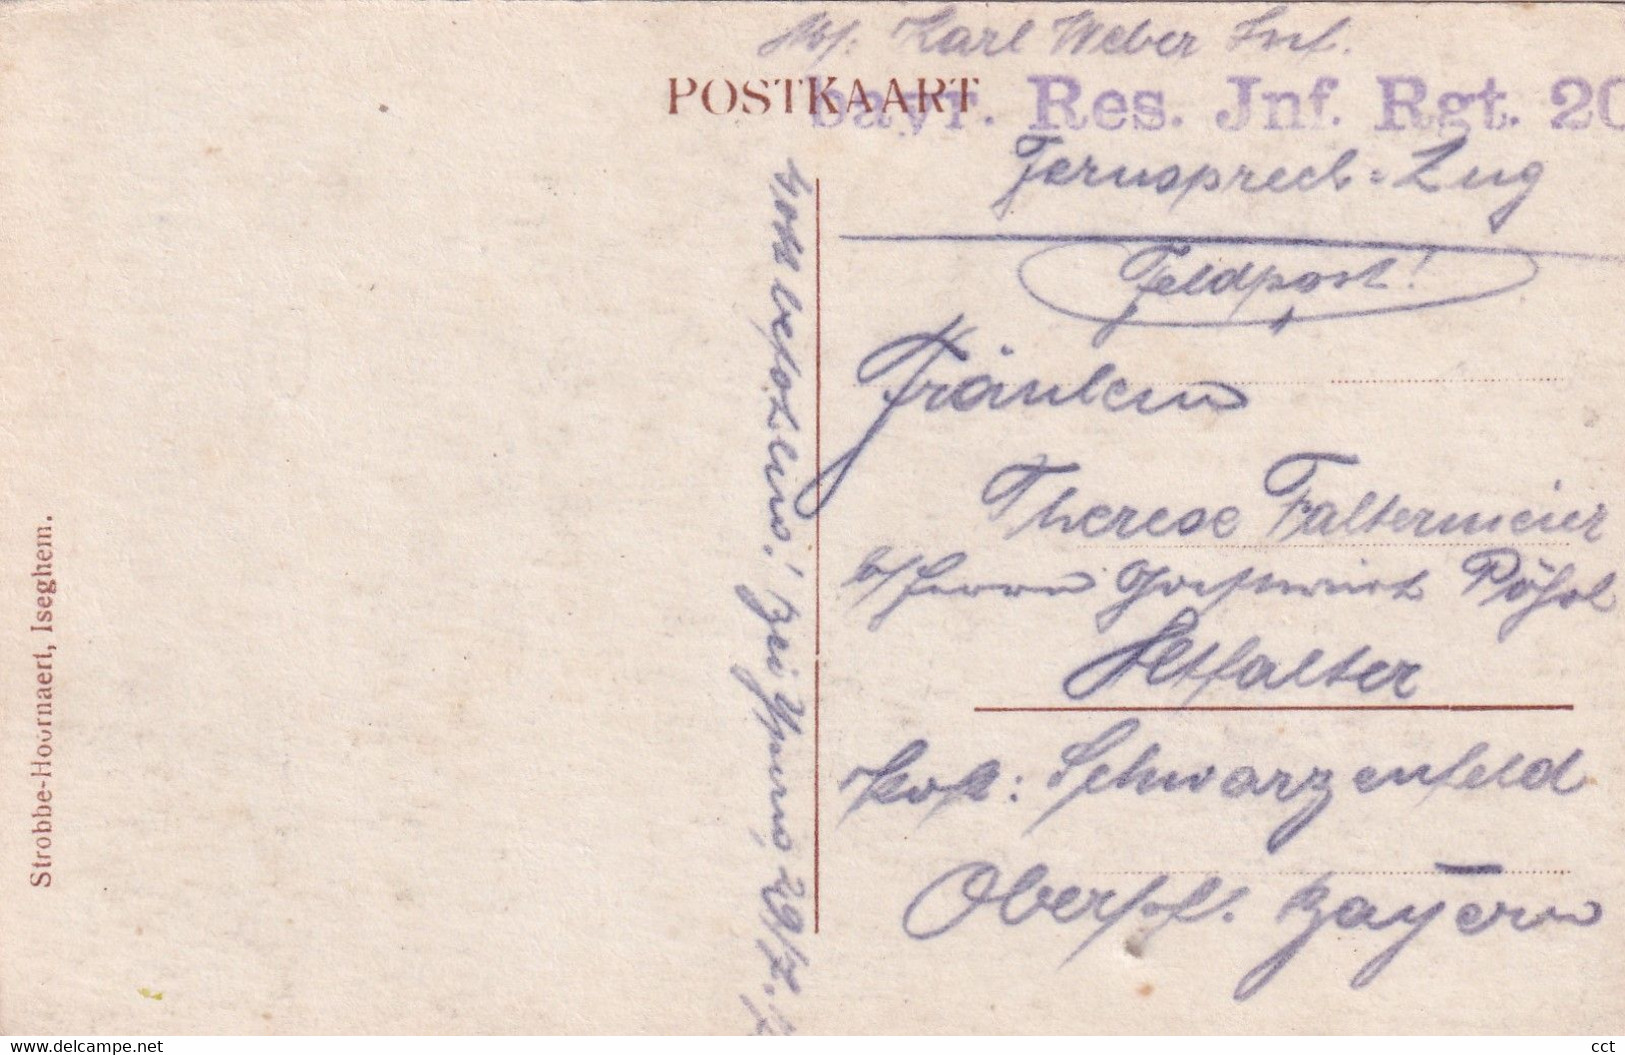 Abs: Karl Weber Inf.
POSTKAART
bayr. Res. Jnf. Rgt. 20
Fernsprech-Zug
Feldpost!
Fräulein
Therese Faltermeier
b/ Herrn Gastwirt
Altfalter
Post: Schwarzenfeld
Oberpf. Bayern
Gott befohlen! bei Ypern, 29/7.
Strobbe-Hoornaert, Iseghem.
delcampe.net
cct